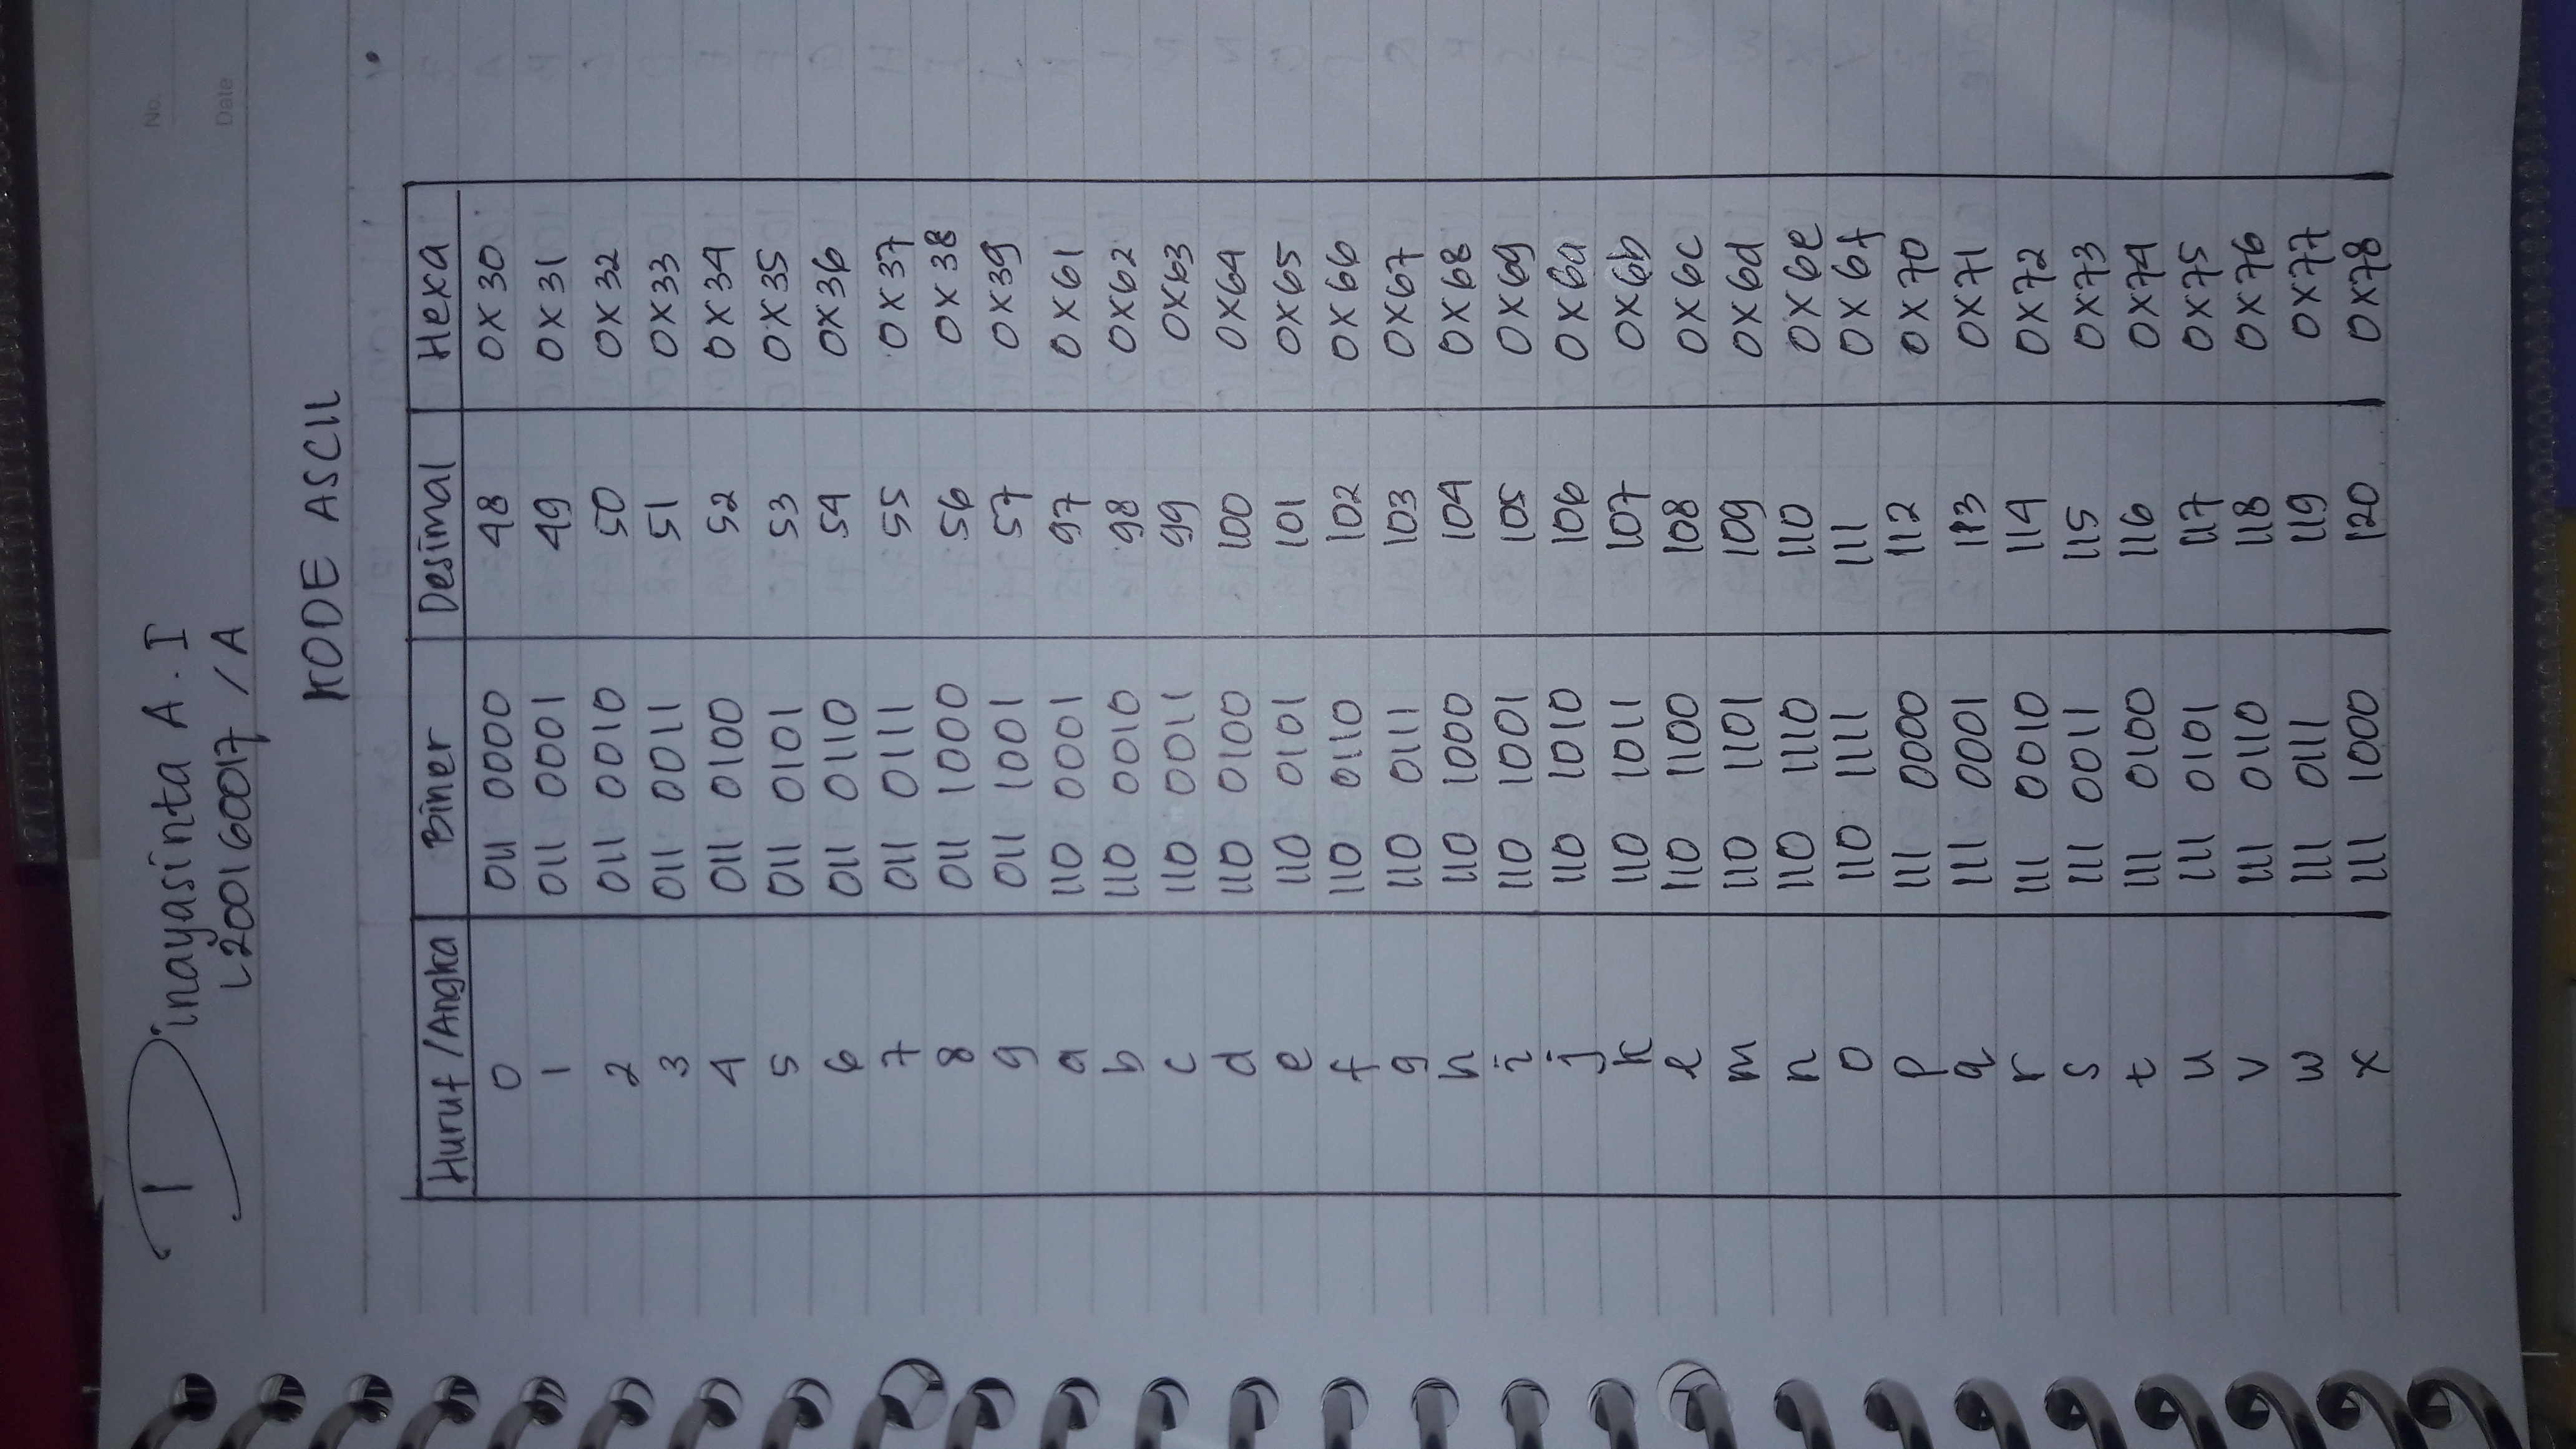 Dinayasinta A. I
L200160017 / A
No.
Date
KODE ASCII
Huruf / Angka Biner Desimal Hexa
0 011 0000 48 0X30
1 011 0001 49 0X31
2 011 0010 50 0X32
3 011 0011 51 0X33
4 011 0100 52 0X34
5 011 0101 53 0X35
6 011 0110 54 0X36
7 011 0111 55 0X37
8 011 1000 56 0X38
9 011 1001 57 0X39
a 110 0001 97 0X61
b 110 0010 98 0X62
c 110 0011 99 0X63
d 110 0100 100 0X64
e 110 0101 101 0X65
f 110 0110 102 0X66
g 110 0111 103 0X67
h 110 1000 104 0X68
i 110 1001 105 0X69
j 110 1010 106 0X6a
k 110 1011 107 0X6b
l 110 1100 108 0X6c
m 110 1101 109 0X6d
n 110 1110 110 0X6e
o 110 1111 111 0X6f
p 111 0000 112 0X70
q 111 0001 113 0X71
r 111 0010 114 0X72
s 111 0011 115 0X73
t 111 0100 116 0X74
u 111 0101 117 0X75
v 111 0110 118 0X76
w 111 0111 119 0X77
x 111 1000 120 0X78